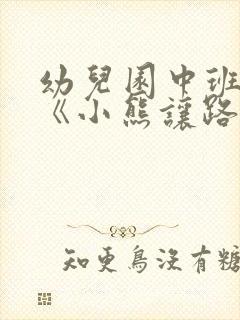 幼兒園中班
《小熊讓路
知更鳥沒有糖